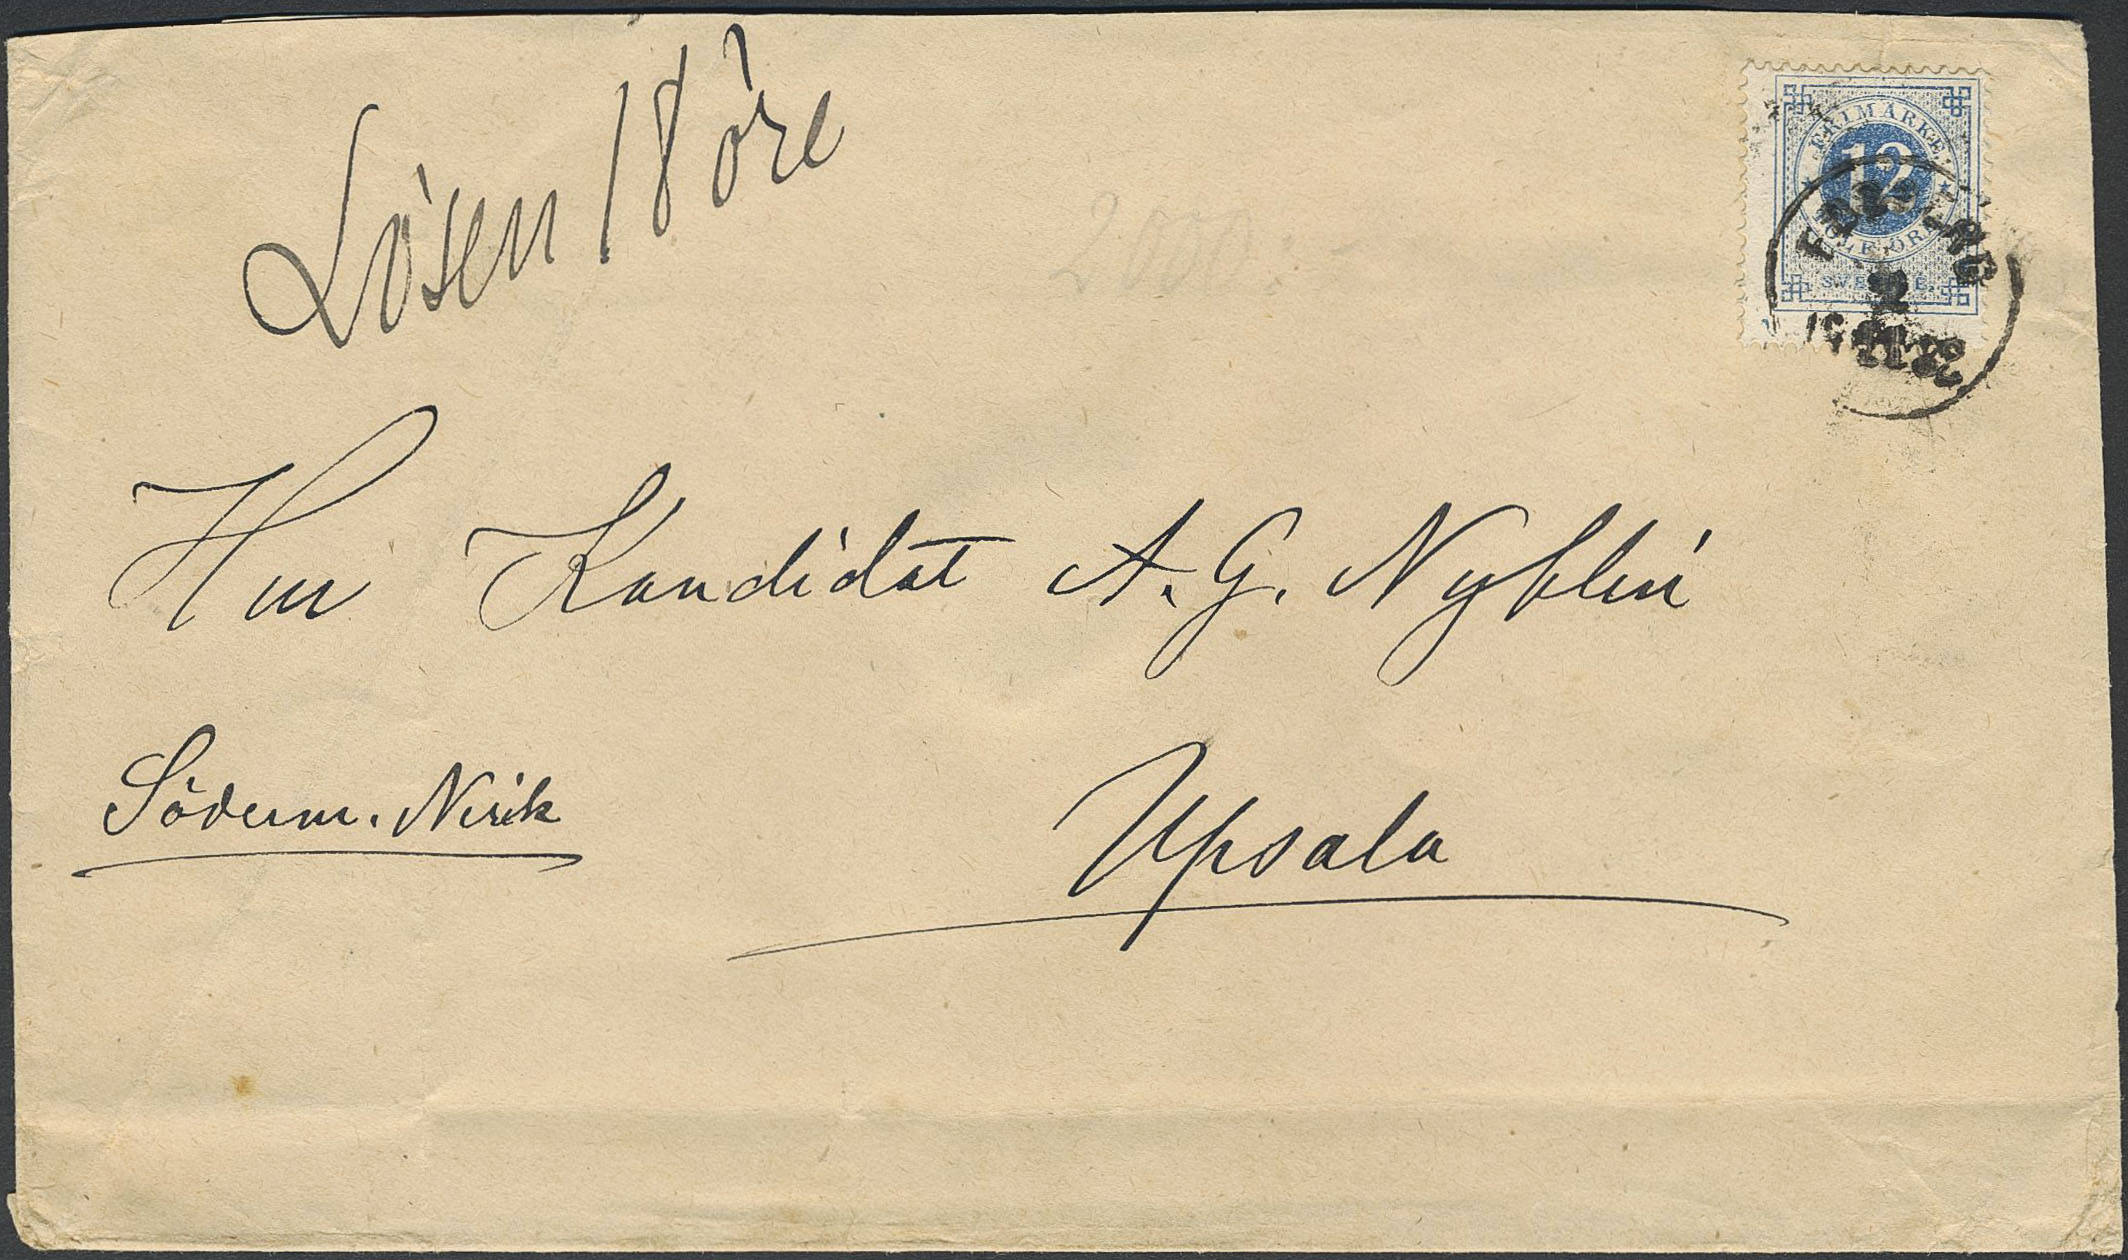 Lösen 18 öre
2000:-
FRIMÄRKE
12
TOLF ÖRE
SVERIGE
2
Herr Kandidat A. G. Nyblin
Söderm. Nerik
Upsala